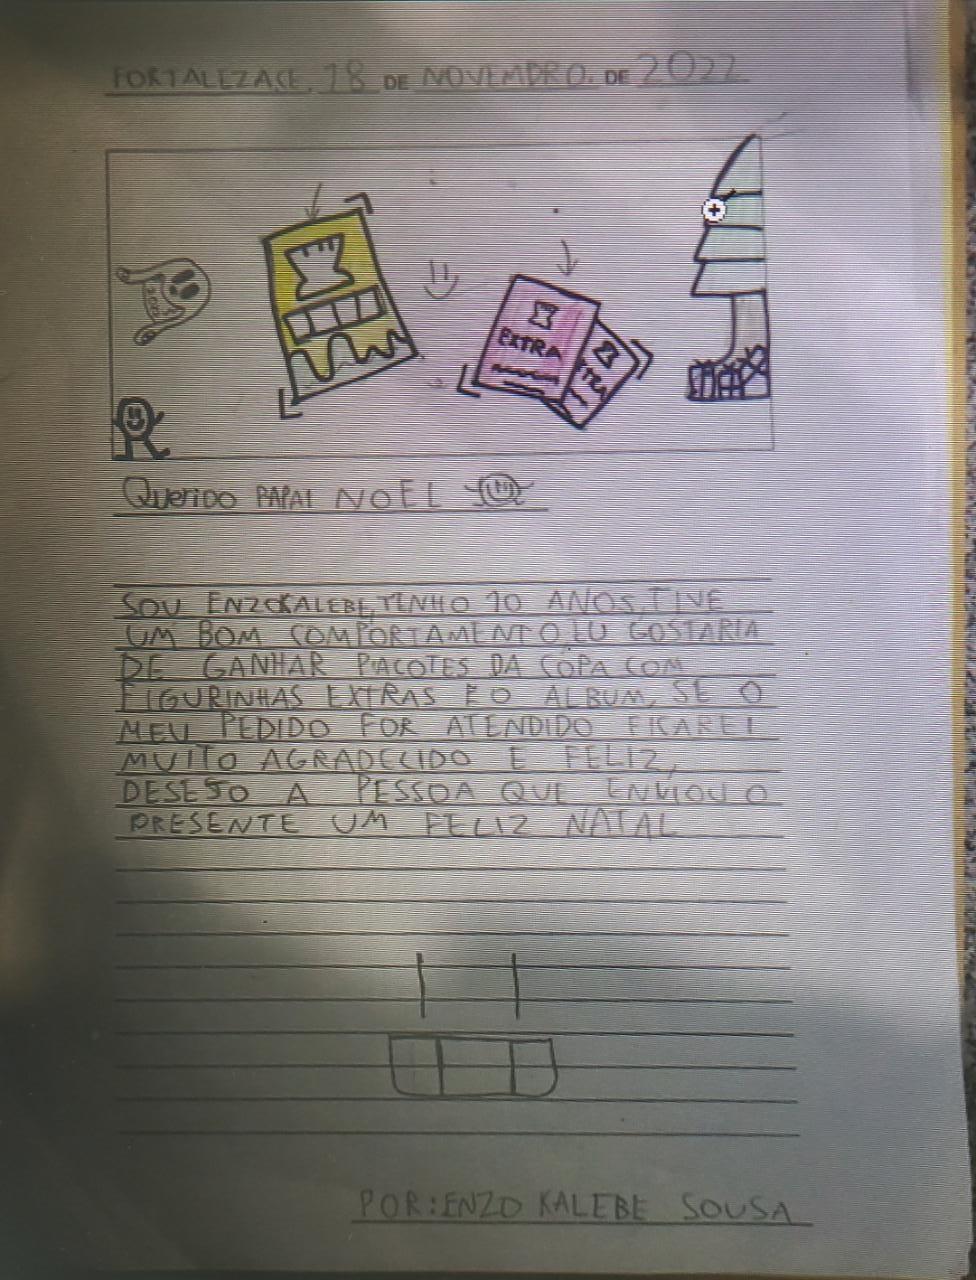 FORTALEZA CE, 18 DE NOVEMBRO. DE 2022
EXTRA
QUERIDO PAPAI NOEL
SOU ENZO KALEBE, TENHO 10 ANOS, TIVE
UM BOM COMPORTAMENTO, EU GOSTARIA
DE GANHAR PACOTES DA COPA COM
FIGURINHAS EXTRAS E O ALBUM, SE O
MEU PEDIDO FOR ATENDIDO FICAREI
MUITO AGRADECIDO E FELIZ,
DESEJO A PESSOA QUE ENVIOU O
PRESENTE UM FELIZ NATAL
POR: ENZO KALEBE SOUSA